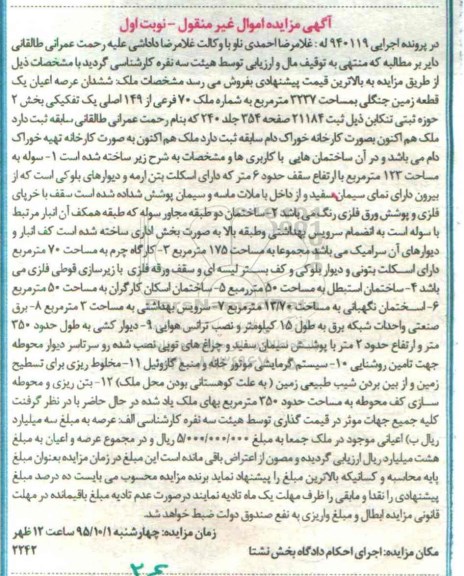 آگهی مزایده اموال غیر منقول - نوبت اول
در پرونده اجرایی ۹۴۰۱۱۹ له : غلامرضا احمدی ناو با وکالت غلامرضا داداشی علیه رحمت عمرانی طالقانی
دایر بر مطالبه که منتهی به توقیف مال و ارزیابی توسط هیئت سه نفره کارشناسی گردید با مشخصات ذیل
از طریق مزایده به بالاترین قیمت پیشنهادی بفروش می رسد مشخصات ملک: ششدان عرصه اعیان یک
قطعه زمین جنگلی بمساحت ۳۲۳۷ مترمربع به شماره ملک ۷۰ فرعی از ۱۴۹ اصلی یک تفکیکی بخش ۲
حوزه ثبتی تنکابن ذیل ثبت ۲۱۱۸۴ صفحه ۳۵۴ جلد ۲۴۰ که بنام رحمت عمرانی طالقانی سابقه ثبت دارد
ملک هم اکنون بصورت کارخانه خوراک دام سابقه ثبت دارد ملک هم اکنون به صورت کارخانه تهیه خوراک
دام می باشد و در آن ساختمان هایی با کاربری ها و مشخصات به شرح زیر ساخته شده است ۱- سوله به
مساحت ۱۲۳ مترمربع با ارتفاع سقف حدود ۶ متر که دارای اسکلت بتن آرمه و دیوارهای بلوکی است که از
بیرون دارای نمای سیمان سفید و از داخل با ملات ماسه و سیمان پوشش شداده شده است سقف با خرپای
فلزی و پوشش ورق فلزی رنگ می باشد ۲- ساختمان دو طبقه مجاور سوله که طبقه همکف آن انبار مرتبط
با سوله است به انضمام سرویس بهداشتی وطبقه بالا به صورت بخش اداری ساخته شده است کف انبار و
دیوارهای آن سرامیک می باشد مجموعا به مساحت ۱۷۵ مترمربع ۳- کارگاه چرم به مساحت ۷۰ مترمربع
دارای اسکلت بتونی و دیوار بلوکی و کف بستر لیسه ای و سقف ورقه فلزی با زیرسازی قوطی فلزی می
باشد ۴- ساختمان استبطل به مساحت ۵۰ متررمبع ۵- ساختمان اسکان کارگران به مساحت ۵۰ مترمربع
۶- اسختمان نگهبانی به مساحت ۱۳/۷۰ مترمربع ۷- سرویس بهداشتی به مساحت ۳ مترمربع ۸- برق
صنعتی واحداث شبکه برق به طول ۱۵ کیلومتر و نصب ترانس هوایی ۹- دیوار کشی به طول حدود ۳۵۰
متر و ارتفاع حدود ۲ متر با پوشش سیمان سفید و چراغ های توپی نصب شده رو سرتاسر دیوار محوطه
جهت تامین روشنایی ۱۰- سیستم گرمایشی موتور خانه و منبع گازوئیل ۱۱- مخلوط ریزی برای تسطیح
زمین و از بین بردن شیب طبیعی زمین ( به علت کوهستانی بودن محل ملک) ۱۲- بتن ریزی و محوطه
سازی کف محوطه به مساحت حدود ۳۵۰ مترمربع بهای ملک یاد شده در حال حاضر با در نظر گرفت
کلیه جمیع جهات موثر در قیمت گذاری توسط هیئت سه نفره کارشناسی الف: عرصه به مبلغ سه میلیارد
ریال ب) اعیانی موجود در ملک جمعا به مبلغ ۵/۰۰۰/۰۰۰/۰۰۰ ریال و در مجموع عرصه و اعیان به مبلغ
هشت میلیارد ریال ارزیابی گردیده و مصون از اعتراض باقی مانده است این مبلغ در زمان مزایده بعنوان مبلغ
پایه محاسبه و کسانیکه بالاترین مبلغ را پیشنهاد نماید برنده مزایده محسوب می بایست ده درصد مبلغ
پیشنهادی را نقدا و مابقی را ظرف مهلت یک ماه تادیه نمایند درصورت عدم تادیه مبلغ باقیمانده در مهلت
قانونی مزایده ابطال و مبلغ واریزی به نفع صندوق دولت ضبط خواهد شد.
زمان مزایده: چهارشنبه ۹۵/۱۰/۱ ساعت ۱۲ ظهر
مکان مزایده: اجرای احکام دادگاه بخش نشتا
۲۲۴۲
۲۶